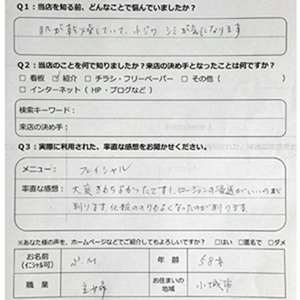 Q1：当店を知る前、どんなことで悩んでいましたか？
肌が乾燥していて、小ジワ シミが気になります
Q2：当店のことを何で知りましたか？来店の決め手となったことは何ですか？
□ 看板 ☑ 紹介 □ チラシ・フリーペーパー □ その他（　　）
□ インターネット（HP・ブログなど）
検索キーワード：
来店の決め手：
Q3：実際に利用された、率直な感想をお聞かせください。
メニュー： フェイシャル
率直な感想： 大変きもちよかったです！ローションの浸透がいいのも
判ります。化粧ののりもよくなったのが判ります
※あなた様の声を、ホームページなどでご紹介してもよろしいですか？ □はい □匿名で □ダメ
お名前（イニシャル可） S.M. 年齢 58才
職業 主婦 お住まいの地域 小城市